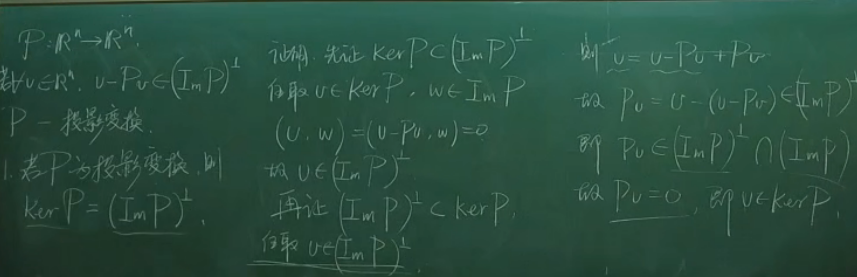 P: ℝⁿ→ℝⁿ.
若∀υ∈ℝⁿ, υ-Pυ∈(ImP)^⊥
P — 投影变换.
1. 若P为投影变换, 则
KerP=(ImP)^⊥.
证明. 先证 KerP⊂(ImP)^⊥
任取υ∈KerP, w∈ImP
(υ,w)=(υ-Pυ,w)=0
故 υ∈(ImP)^⊥
再证 (ImP)^⊥⊂KerP,
任取 υ∈(ImP)^⊥
则 υ=υ-Pυ+Pυ
故 Pυ=υ-(υ-Pυ)∈(ImP)^⊥
即 Pυ∈(ImP)^⊥∩(ImP)
故 Pυ=0, 即υ∈KerP.